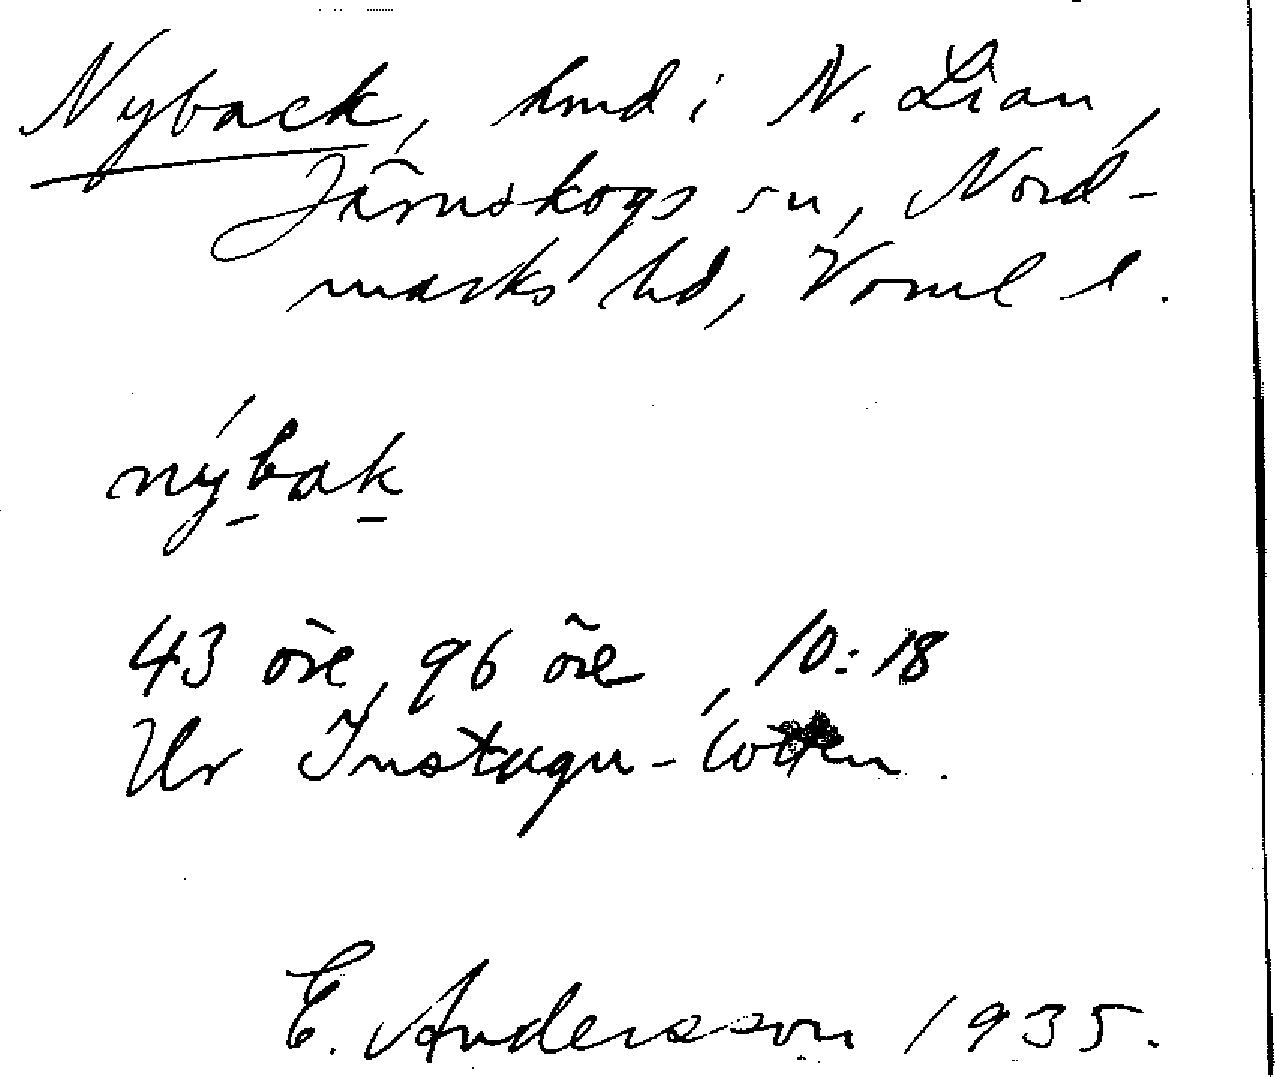 Nyback, hmd i N. Lian,
Järnskogs sn, Nord-
marks hd, Verml l.
nýbak
43 öre, 96 öre, 10:18
Ur Instagu-lotten.
E. Andersson 1935.